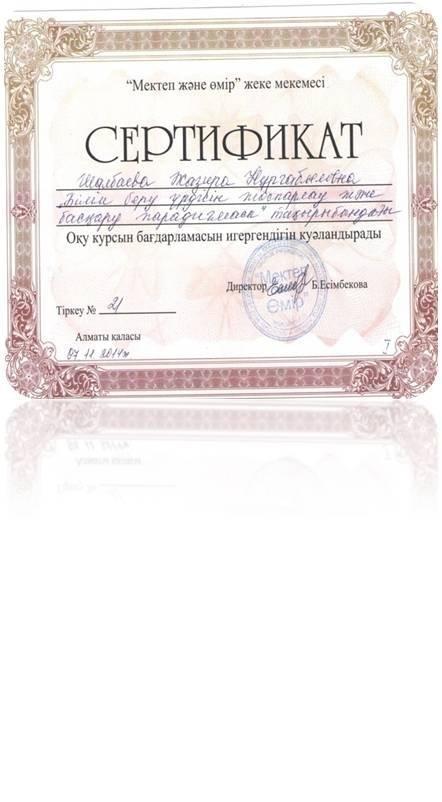 “Мектеп және өмір” жеке мекемесі
СЕРТИФИКАТ
Шалбаева Жазира Нұрғабыловна
"Білім беру үрдісін жоспарлау және
басқару парадигмасы" тақырыбындағы
Оқу курсын бағдарламасын игергендігін куәландырады
"Мектеп
Өмір"
Директор Б.Есімбекова
Тіркеу № 21
Алматы қаласы
07.11.2014ж